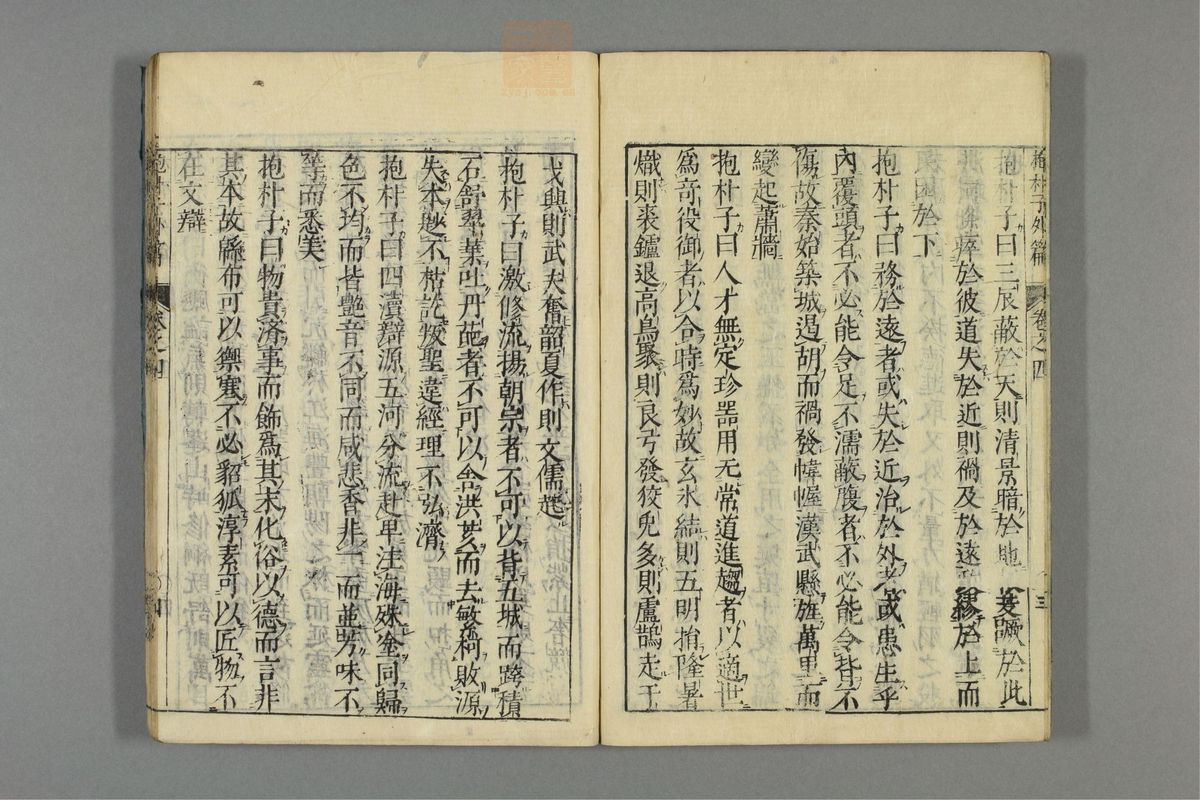 抱朴子外篇 卷之四 三
抱朴子曰三辰蔽於天則清景暗於地 芟蹶於此
瘁於彼道失於近則禍及於遠 繆於上而
於下
抱朴子曰務於遠者或失於近治於外者或患生乎
內覆頭者不必能令足不濡蔽腹者不必能令背不
傷故秦始築城遏胡而禍發幃幄漢武懸旌萬里而
變起蕭牆
抱朴子曰人才無定珍器用无常道進趨者以適世
爲奇役御者以合時爲妙故玄氷結則五明捐隆暑
熾則裘鑪退高鳥聚則良弓發狡兔多則盧鵲走干
戈興則武夫奮韶夏作則文儒起
抱朴子曰激修流揚朝宗者不可以背五城而跨積
石舒翠葉吐丹葩者不可以舍洪荄而去敏柯敗源
失本尟不枯訖叛聖違經理不弘濟
抱朴子曰四瀆辯源五河分流赴卑注海殊塗同歸
色不均而皆艷音不同而咸悲香非一而並芳味不
等而悉美
抱朴子曰物貴济事而飾爲其末化俗以德而言非
其本故緜布可以禦寒不必貂狐淳素可以匠物不
在文辯
抱朴子外篇 卷之四